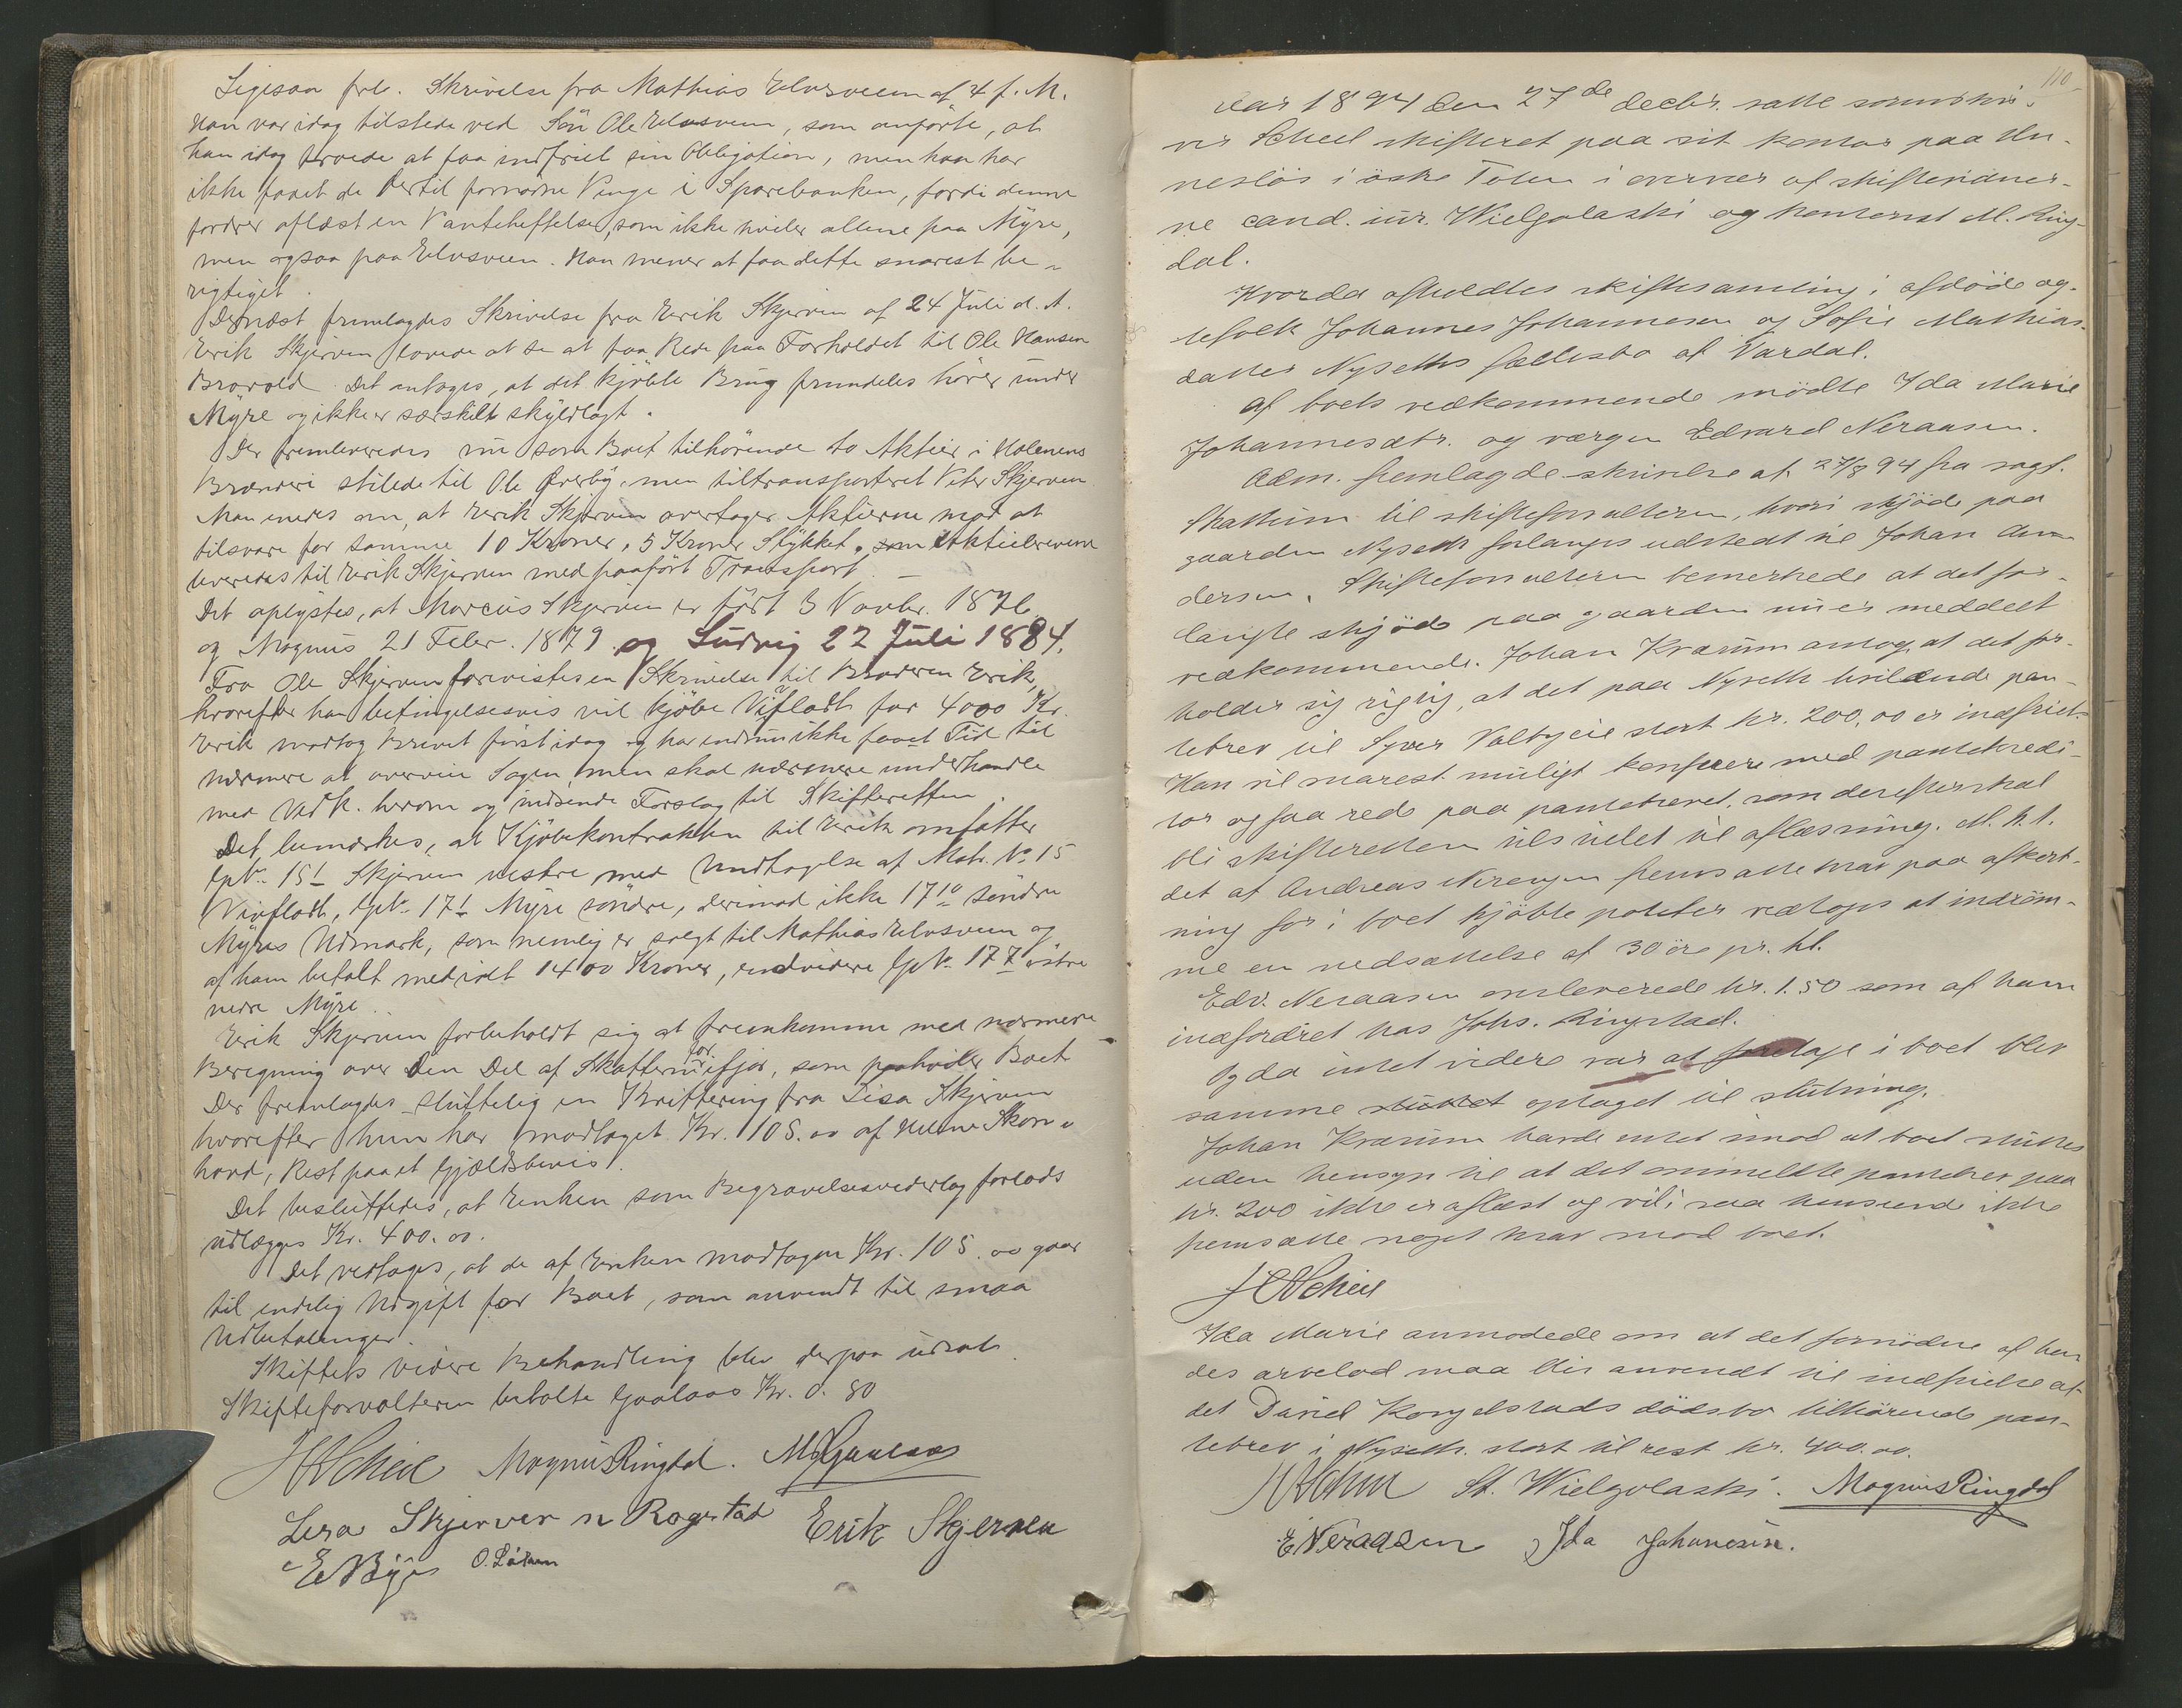 Ligesaa frl. Skrivelse fra Mathias Elvsveen af 4 f. M.
Han var idag tilstede ved Søn Ole Elvsveen, som anførte, at
han idag troede at faa indfriet sin Obligation, men han har
ikke faaet de dertil fornødne Penge i Sparebanken, fordi denne
fordrer aflæst en Panteheftelse, som ikke hviler allene paa Myre,
men ogsaa paa Elvsveen. Han mener at faa dette snarest be-
rigtiget.
Dernæst fremlagdes Skrivelse fra Erik Skjerven af 24 Juli d. A.
Erik Skjerven lovede at se at faa Rede paa Forholdet til Ole Hansen
Braavold. Det antages, at det kjøbte Brug fremdeles hører under
Myre og ikke er særskilt skyldlagt.
Der fremleveredes nu som Boet tilhørende to Aktier i Holmens
Brænderi stilede til Ole Øverby, men tiltransporteret Peter Skjerven
Man enedes om, at Erik Skjerven overtager Aktierne mod at
tilsvare for samme 10 Kroner, 5 Kroner Stykket, som Aktiebrevene
leveredes til Erik Skjerven med paaført Transport. –
Det oplystes, at Marcus Skjerven er født 3 Novbr. 1876
og Magnus 21 Febr. 1879 og Ludvig 22 Juli 1884.
Fra Ole Skjerven forevistes en Skrivelse til Broderen Erik,
hvorefter han betingelsesvis vil kjøbe Vifladt for 4000 Kr.
Erik modtog Brevet først idag og har endnu ikke faaet Tid til
nærmere at overveie Sagen, men skal nærmere underhandle
med Vedk. herom og indsende Forslag til Skifteretten.
Det bemærkes, at Kjøbekontrakten til Erik omfatter
GpN. 151 Skjerven vestre med Undtagelse af Matr. No 15
Vivfladt, GpN. 171 Myre søndre, derimod ikke 1710 søndre
Myres Udmark, som nemlig er solgt til Mathias Elvsveen og
af ham betalt med idt 1400 Kroner, endvidere GpN. 177 østre
nedre Myre.
Erik Skjerven forbeholdt sig at fremkomme med nærmere
Beregning over den Del af Skatterne for ifjor, som paahviler Boet
Der fremlagdes sluttelig en Kvittering fra Lisa Skjerven
hvorefter hun har modtaget Kr. 105.00 af Skon-
hovd, Rest paa et Gjældsbevis.
Det besluttedes, at Enken som Begravelsesvederlag forlods
udlægges Kr. 400.00.
Det vedtages, at de af Enken modtagne Kr. 105.00 gaar
til endelig Udgift for Boet, som anvendt til smaa
Udbetalinger.
Skiftets videre Behandling blev derpaa udsat.
Skifteforvalteren betalte Gaalaas Kr. 0.80
HScheel Magnus Ringdal. M Gaalaas
Lisa Skjerven n Rogstad Erik Skjerven
E Bye O. Larsen
110
Aar 1894 den 27de decbr. satte sorenskri-
ver Scheel skifteret paa sit kontor paa Hun-
neslös i östre Toten i overvær af skiftevidner-
ne cand. iur. Wielgolaski og kontorist M. Ring-
dal.
Hvorda afholdtes skiftesamling i afdöde eg-
tefolk Johannes Johannesen og Sofie Mathias-
datter Nyseths fællesbo af Vardal.
Af boets vedkommende mödte Ida Marie
Johannesdtr. og værgen Edvard Neraasen.
Adm. fremlagde skrivelse af 27/8 94 fra sagf.
Skattum til skifteforvalteren, hvori skjöde paa
gaarden Nyseth forlanges udstedt til Johan An-
dersen. Skifteforvalteren bemerkede at det for-
langte skjöde paa gaarden nu er meddelt
vedkommende. Johan Kværum antog, at det for-
holder sig rigtig, at det paa Nyseth hvilende pan-
tebrev til Syver Valbyeie stort kr. 200,00 er indfriet.
Han vil snarest muligt konferere med pantekredi-
tor og faa rede paa pantebrevet, som derefter skal
bli skifteretten tilstillet til aflæsning. M. h. t.
det af Andreas fremsatte krav paa afkort-
ning for i boet kjöbte poteter vedtoges at indröm-
me en nedsættelse af 30 öre pr. hl.
Edv. Neraasen indleverede kr. 1.50 som af ham
indfordret hos Johs. Ringstad.
Og da intet videre var at foretage i boet blev
samme sluttet optaget til slutning.
Johan Kværum havde intet imod at boet sluttes
uden hensyn til at det ommeldte pantebrev paa
kr. 200 ikke er aflæst og vil i saa henseende ikke
fremsætte noget krav mod boet.
HScheel
Ida Marie anmodede om at det fornödne af hen-
des arvelod maa blir anvendt til indfrielse af
det Daniel Kongelstads dödsbo tilhörende pan-
tebrev i Nyseth stort til rest kr. 400.00.
HScheel St. Wielgolaski. Magnus Ringdal
E Neraasen Ida Johanesen.